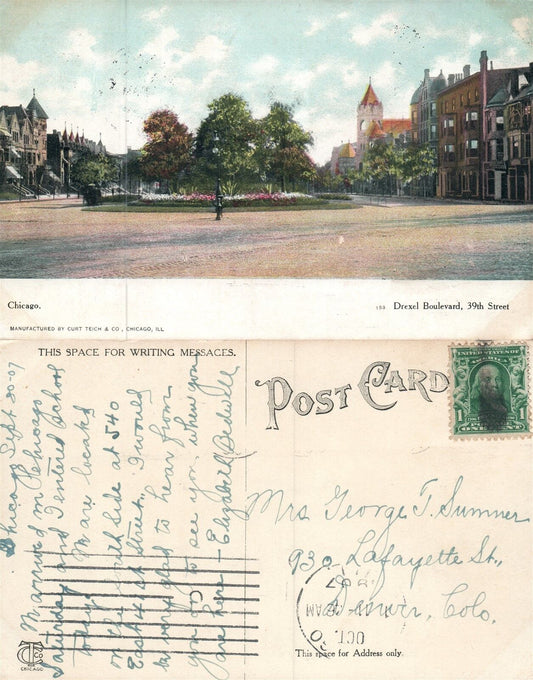 Chicago. 153 Drexel Boulevard, 39th Street
MANUFACTURED BY CURT TEICH & CO., CHICAGO, ILL
THIS SPACE FOR WRITING MESSAGES.
POST CARD
UNITED STATES
1 1
Chicago Sept 30-07
Married in Chicago
Saturday and I entered school
today. May locate
on the south side at 540
East 41st Street. Would
be very glad to hear from
you or to see you when you
are here — Elizabeth
Mrs George T. Sumner
930 Lafayette St.,
Denver, Colo.
OCT
AM
07
This space for Address only.
CT
CHICAGO